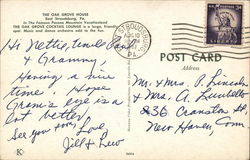 THE OAK GROVE HOUSE
East Stroudsburg, Pa.
In The Famous Pocono Mountain Vacationland
THE OAK GROVE COCKTAIL LOUNGE is a large, friendly
spot. Music and dance orchestra add to the fun.
Hi Nettie, Uncle Paul
& Grammy,
Having a nice
time. Hope
Gram's eye is a
lot better.
See you soon,
Love,
Jill & Lew
STROUDSBURG
PA.
POST CARD
Address
Mr. & Mrs. P. Lincoln
& Mrs. A.
236 Cranston St
New Haven, Conn
K